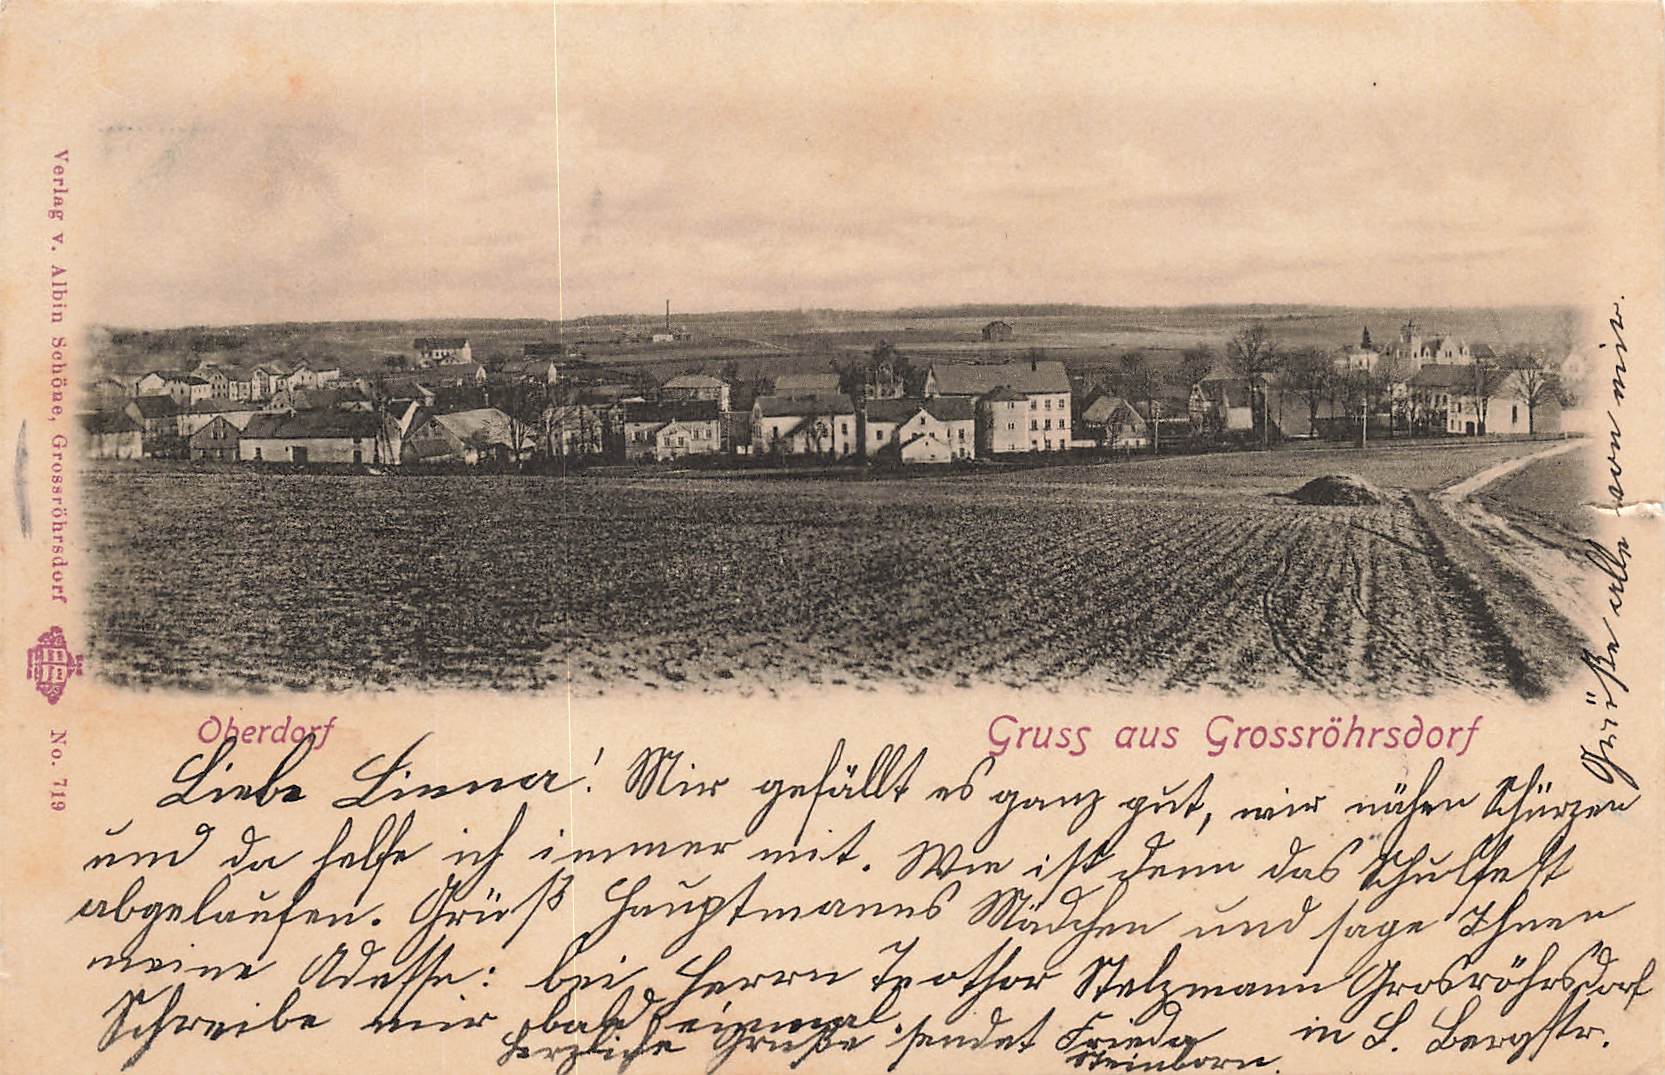 Verlag v. Albin Schöne, Grossröhrsdorf No. 719
Oberdorf
Gruss aus Grossröhrsdorf
Liebe Linna! Mir gefällt es ganz gut, wir nähen Schürzen
und da helfe ich immer mit. Wie ist denn das Schulfest
abgelaufen. Grüß Hauptmanns Mädchen und sage Ihnen
meine Adesse: bei Herrn Teothor Stelzmann Grosröhrsdorf
in S. Bergstr.
Schreibe mir bald einmal.
Herzliche Grüße sendet Frieda
Steinborn.
Grüße alle von mir.